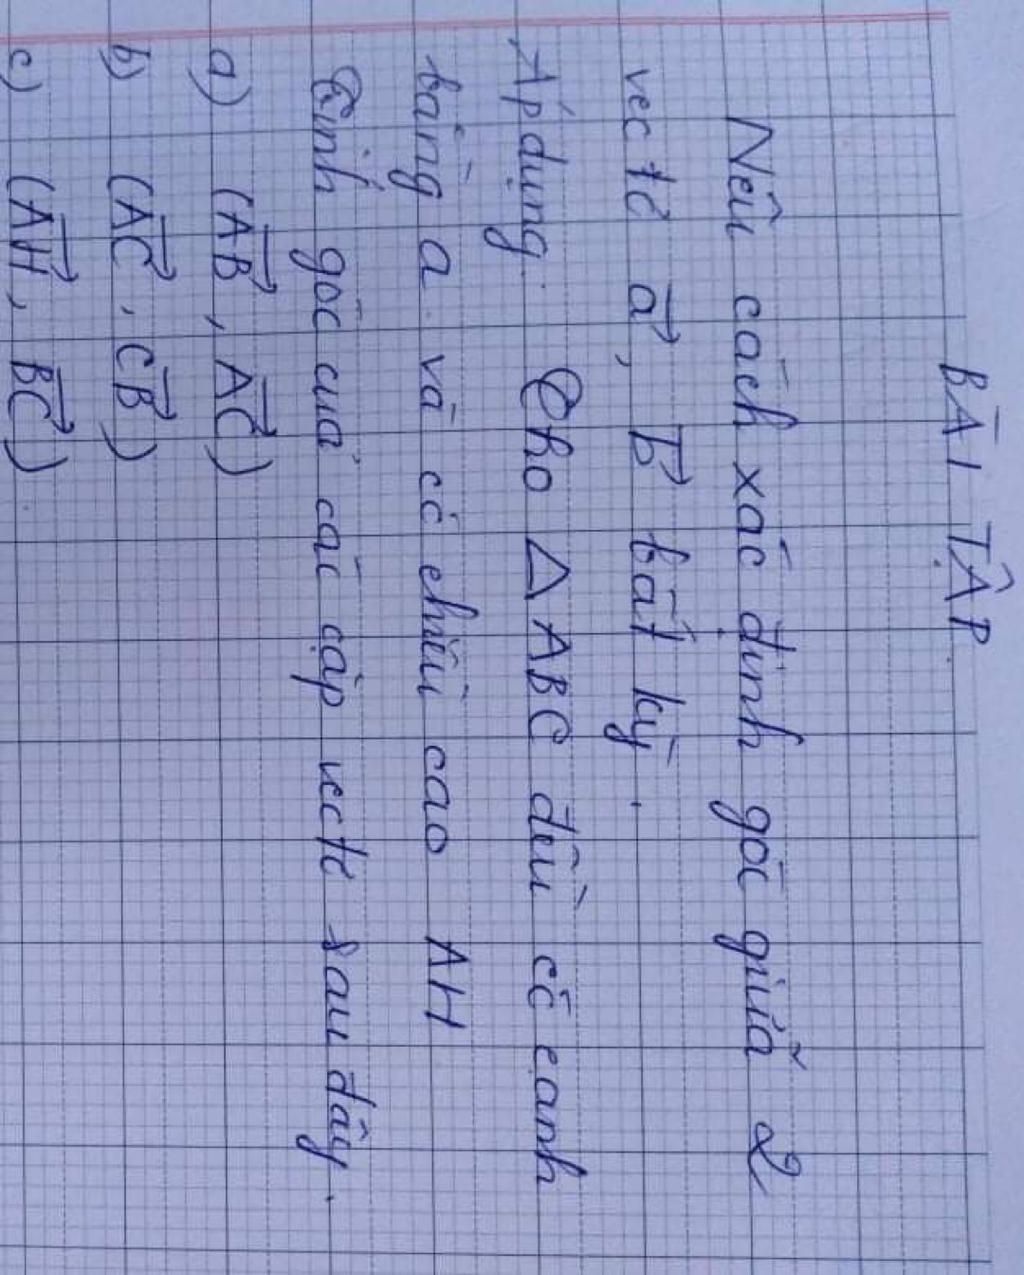 BÀI TẬP
Nêu cách xác định góc giữa 2
vectơ a, b bất kỳ.
Áp dụng. Cho △ ABC đều có cạnh
bằng a và có chiều cao AH
Tính góc của các cặp vectơ sau đây.
a) (AB, AC)
b) (AC, CB)
c) (AH, BC)